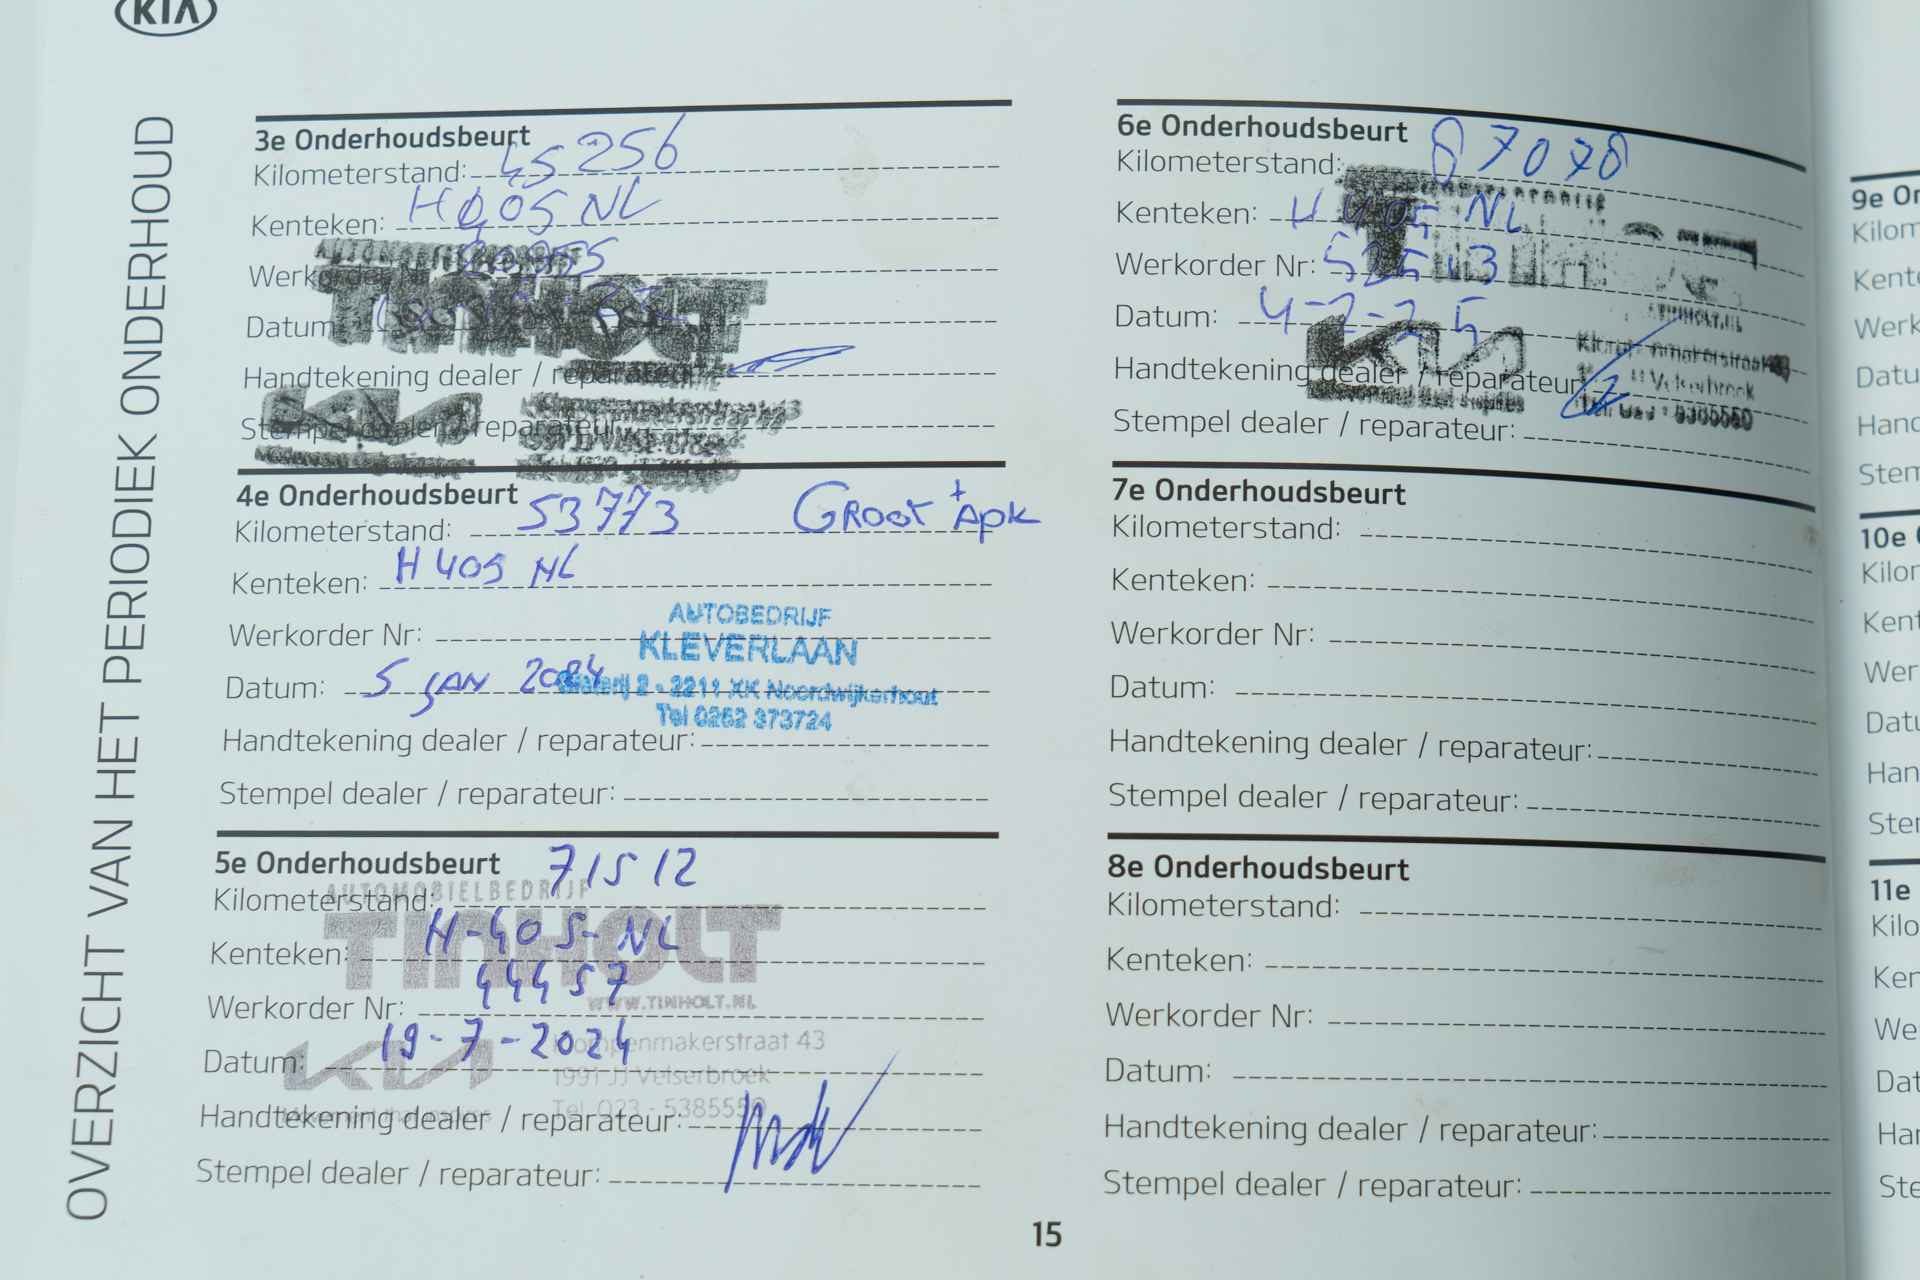 KIA
OVERZICHT VAN HET PERIODIEK ONDERHOUD
3e Onderhoudsbeurt
Kilometerstand: 45256
Kenteken: H405 NL
Werkorder Nr
TINHOLT
Datum
Handtekening dealer / reparateur:
Stempel dealer / reparateur:
4e Onderhoudsbeurt
Kilometerstand: 53773 GROOT + APK
Kenteken: H 405 NL
Werkorder Nr:
AUTOBEDRIJF
KLEVERLAAN
2 - 2211 XK Noordwijkerhout
Tel 0252 373724
Datum: 5 JAN 2024
Handtekening dealer / reparateur:
Stempel dealer / reparateur:
5e Onderhoudsbeurt
AUTOMOBIELBEDRIJF
TINHOLT
WWW.TINHOLT.NL
Kilometerstand: 71512
Kenteken: H-405-NL
Werkorder Nr: 44457
Datum: 19-7-2024
KIA
Movement that inspires
Klompenmakerstraat 43
1991 JJ Velserbroek
Tel. 023 - 5385550
Handtekening dealer / reparateur:
Stempel dealer / reparateur:
6e Onderhoudsbeurt
Kilometerstand: 87078
Kenteken: H 405 NL
Werkorder Nr:
Datum: 4-2-25
KIA
Handtekening dealer / reparateur:
Stempel dealer / reparateur:
7e Onderhoudsbeurt
Kilometerstand:
Kenteken:
Werkorder Nr:
Datum:
Handtekening dealer / reparateur:
Stempel dealer / reparateur:
8e Onderhoudsbeurt
Kilometerstand:
Kenteken:
Werkorder Nr:
Datum:
Handtekening dealer / reparateur:
Stempel dealer / reparateur:
15
9e On
Kilom
Kente
Werk
Datu
Hand
Stem
10e
Kilor
Kent
Wer
Datu
Han
Ster
11e
Kilo
Ken
We
Dat
Har
Ste